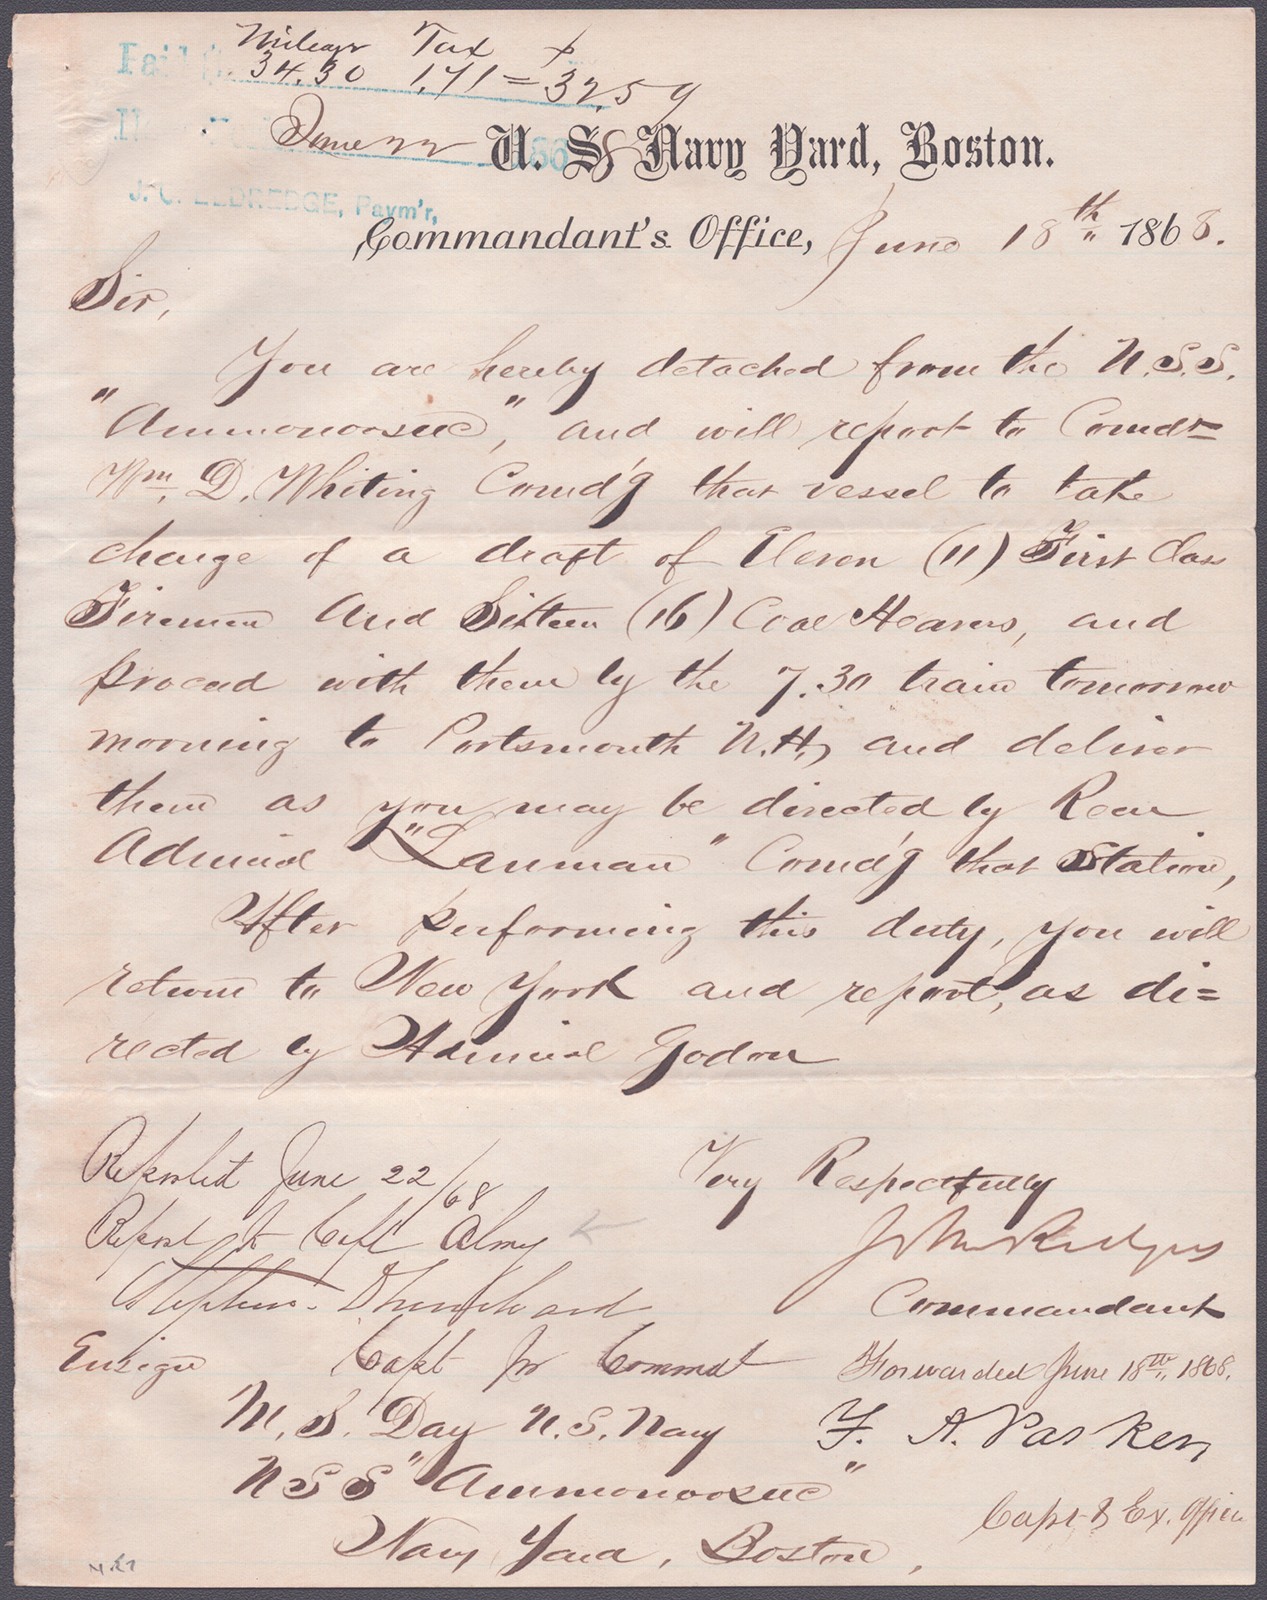 Mileage Tax $
34.30 1.71 = 32.59
Paid
June 22
J. C. ELDREDGE, Paym'r,
U. S. Navy Yard, Boston.
Commandant's Office, June 18th 1868.
Sir,
You are hereby detached from the U.S.S.
"Ammonoosuc", and will report to Comdr
Wm. D. Whiting Comd'g that vessel to take
charge of a draft of Eleven (11) First Class
Firemen and Sixteen (16) Coal Heavers, and
proceed with them by the 7.30 train tomorrow
morning to Portsmouth N.H., and deliver
them as you may be directed by Rear
Admiral "Lanman" Comd'g that Station,
After performing this duty, you will
return to New York and report, as di=
rected by Admiral Godon
Reported June 22/68
Very Respectfully
Report to Capt Almy
John Rodgers
Commandant
Ensign
Capt for Commdt
Forwarded June 18th, 1868.
M. S. Day U.S. Navy
F. A. Parker
U S S "Ammonoosuc"
Capt & Ex. Officer
Navy Yard, Boston,